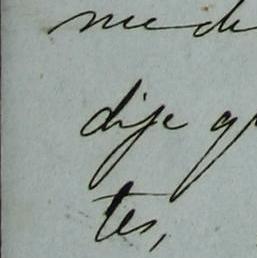 me d
dije q
tes,